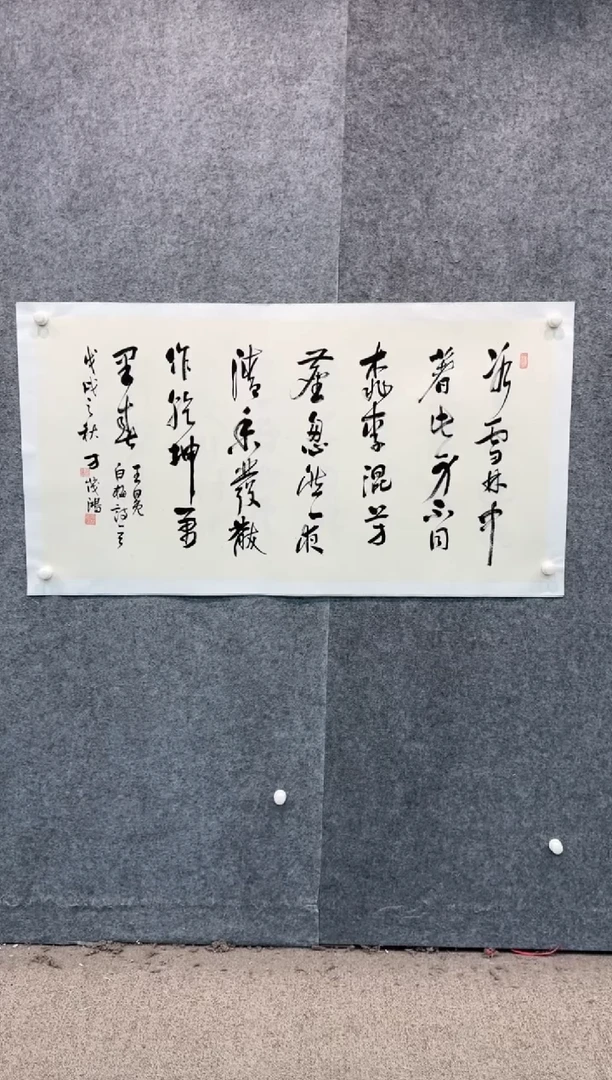 冰雪林中
著此身不同
桃李混芳
塵忽然一夜
清香發散
作乾坤萬
里春
王冕
白梅詩
戊戌之秋 方 鴻